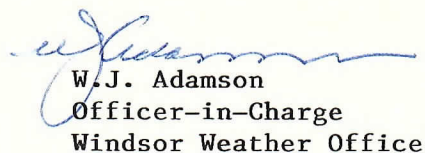 WJ Adamson
W.J. Adamson
Officer-in-Charge
Windsor Weather Office